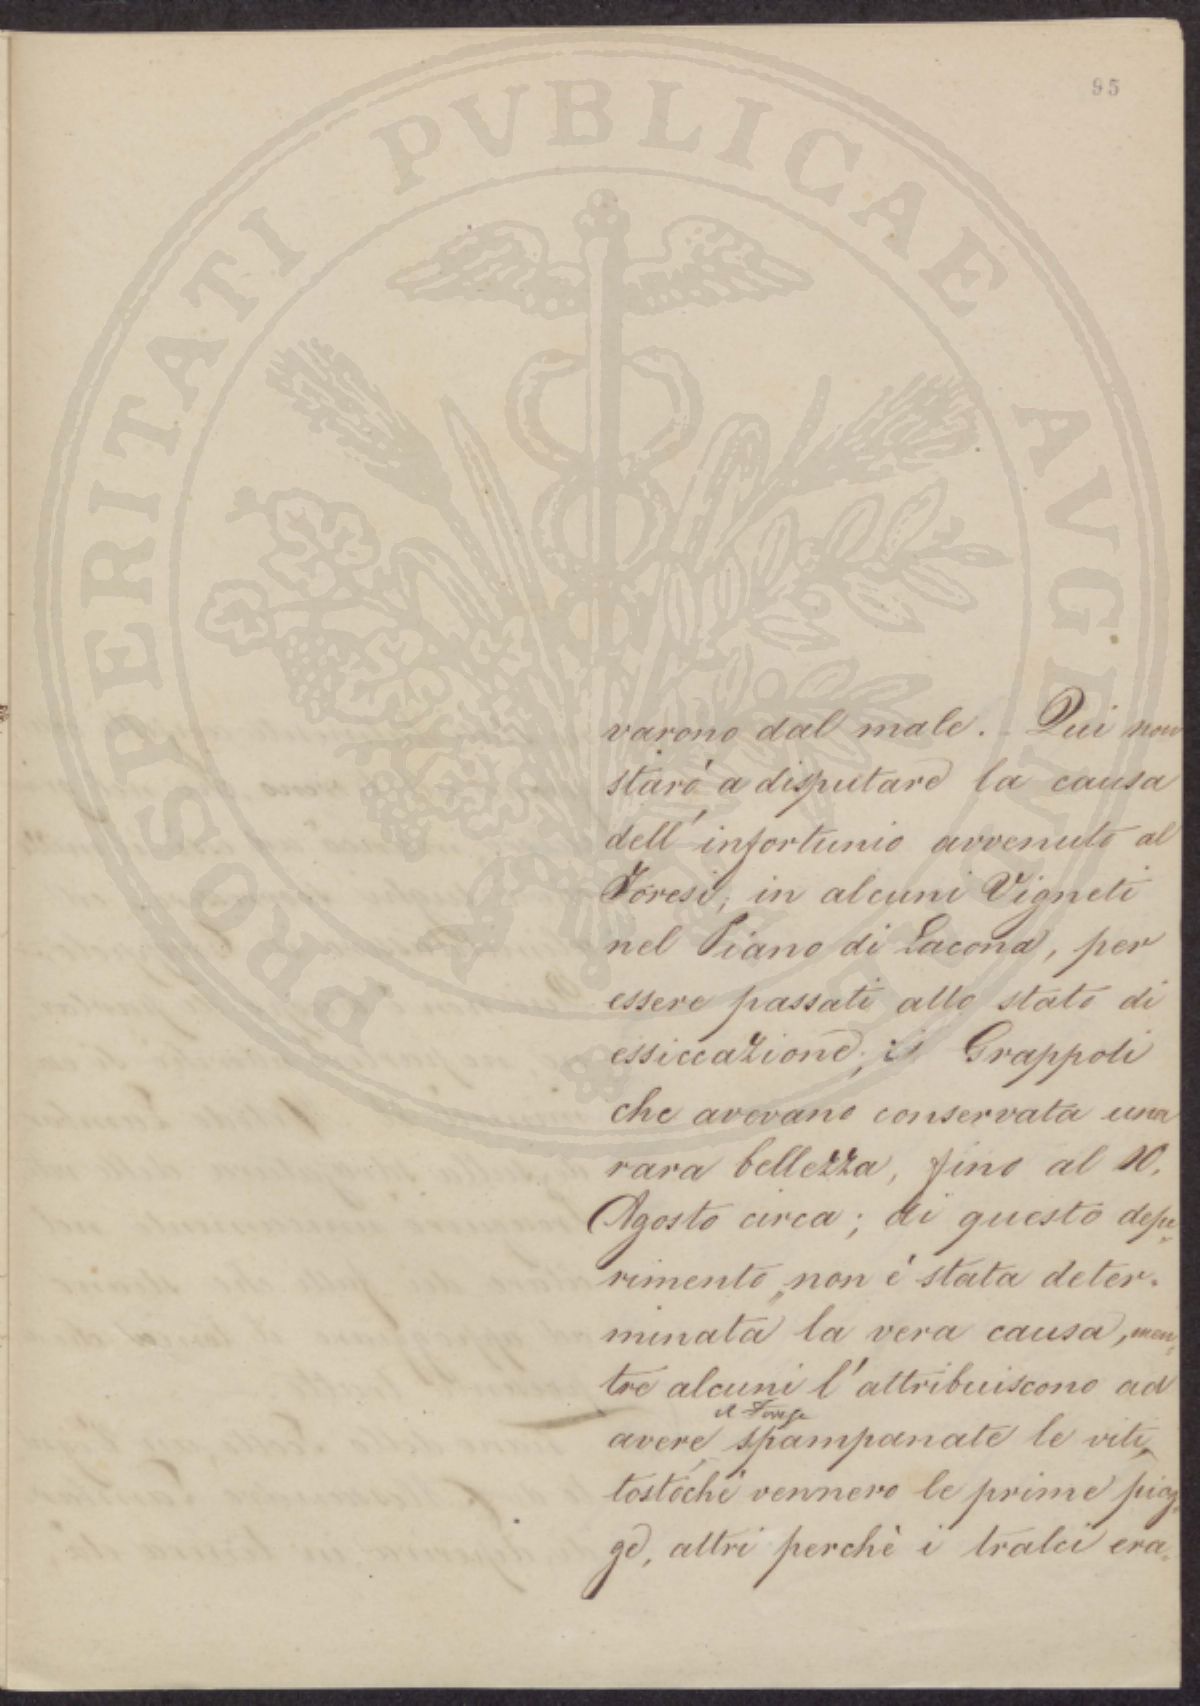 95
PROSPERITATI PVBLICAE AVGENDAE
varono dal male. - Qui non
starò a disputare la causa
dell'infortunio avvenuto al
Foresi, in alcuni Vigneti
nel Piano di Lacona, per
essere passati allo stato di
essiccazione, i Grappoli
che avevano conservata una
rara bellezza, fino al 10.
Agosto circa; di questo depe„
rimento, non è stata deter„
minata la vera causa, men„
tre alcuni l'attribuiscono ad
il Forese
avere spampanate le viti,
tostochè vennero le prime piog„
ge, altri perchè i tralci era„